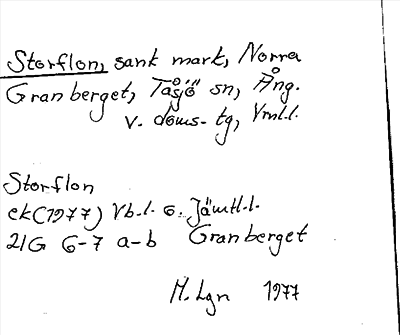 Storflon, sank mark, Norra
Granberget, Tåsjö sn, Ång.
v. doms-tg, Vnl.l.
Storflon
ek(1977) Vb.l. o. Jämtl.l.
21G 6-7 a-b Granberget
M. Lgn 1977